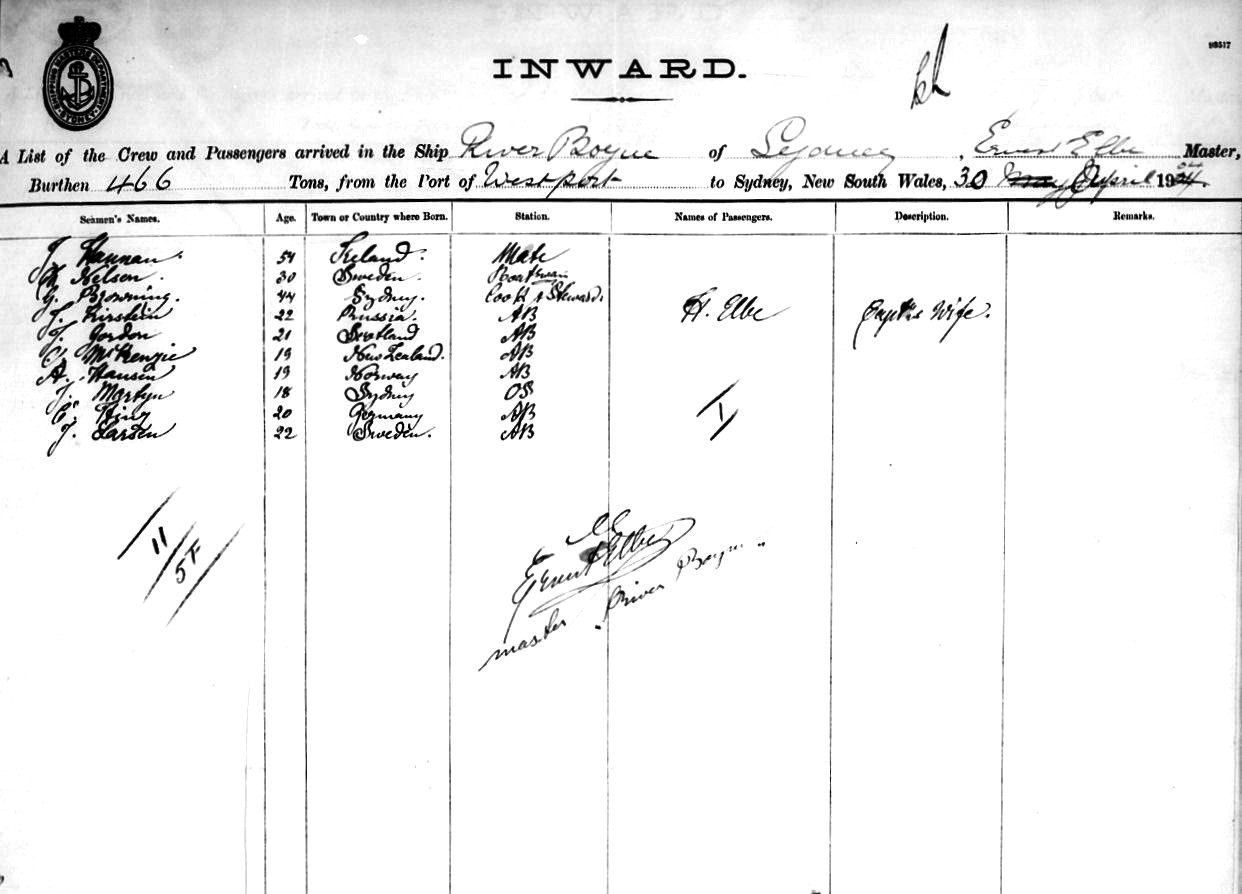 98517
SHIPPING MASTERS DEPARTMENT SYDNEY
INWARD.
A List of the Crew and Passengers arrived in the Ship River Boyne of Sydney, Ernest Elbe Master,
Burthen 466 Tons, from the Port of Westport to Sydney, New South Wales, 30 April 1904.
Seamen's Names. Age. Town or Country where Born. Station. Names of Passengers. Description. Remarks.
J. Hannan. 54 Ireland. Mate
Nelson. 30 Sweden. Boatswain
G. Browning. 44 Sydney. Cook & Steward.
J. Kirstein 22 Prussia. AB H. Elbe Capt's Wife.
J. Gordon 21 Scotland AB
C. McKenzie 19 New Zealand. AB
A. Hansen 19 Norway AB
J. Martyn 18 Sydney OS
C. 20 Germany AB 1
J. Larsen 22 Sweden. AB
11
Ernest Elbe
master "River Boyne"